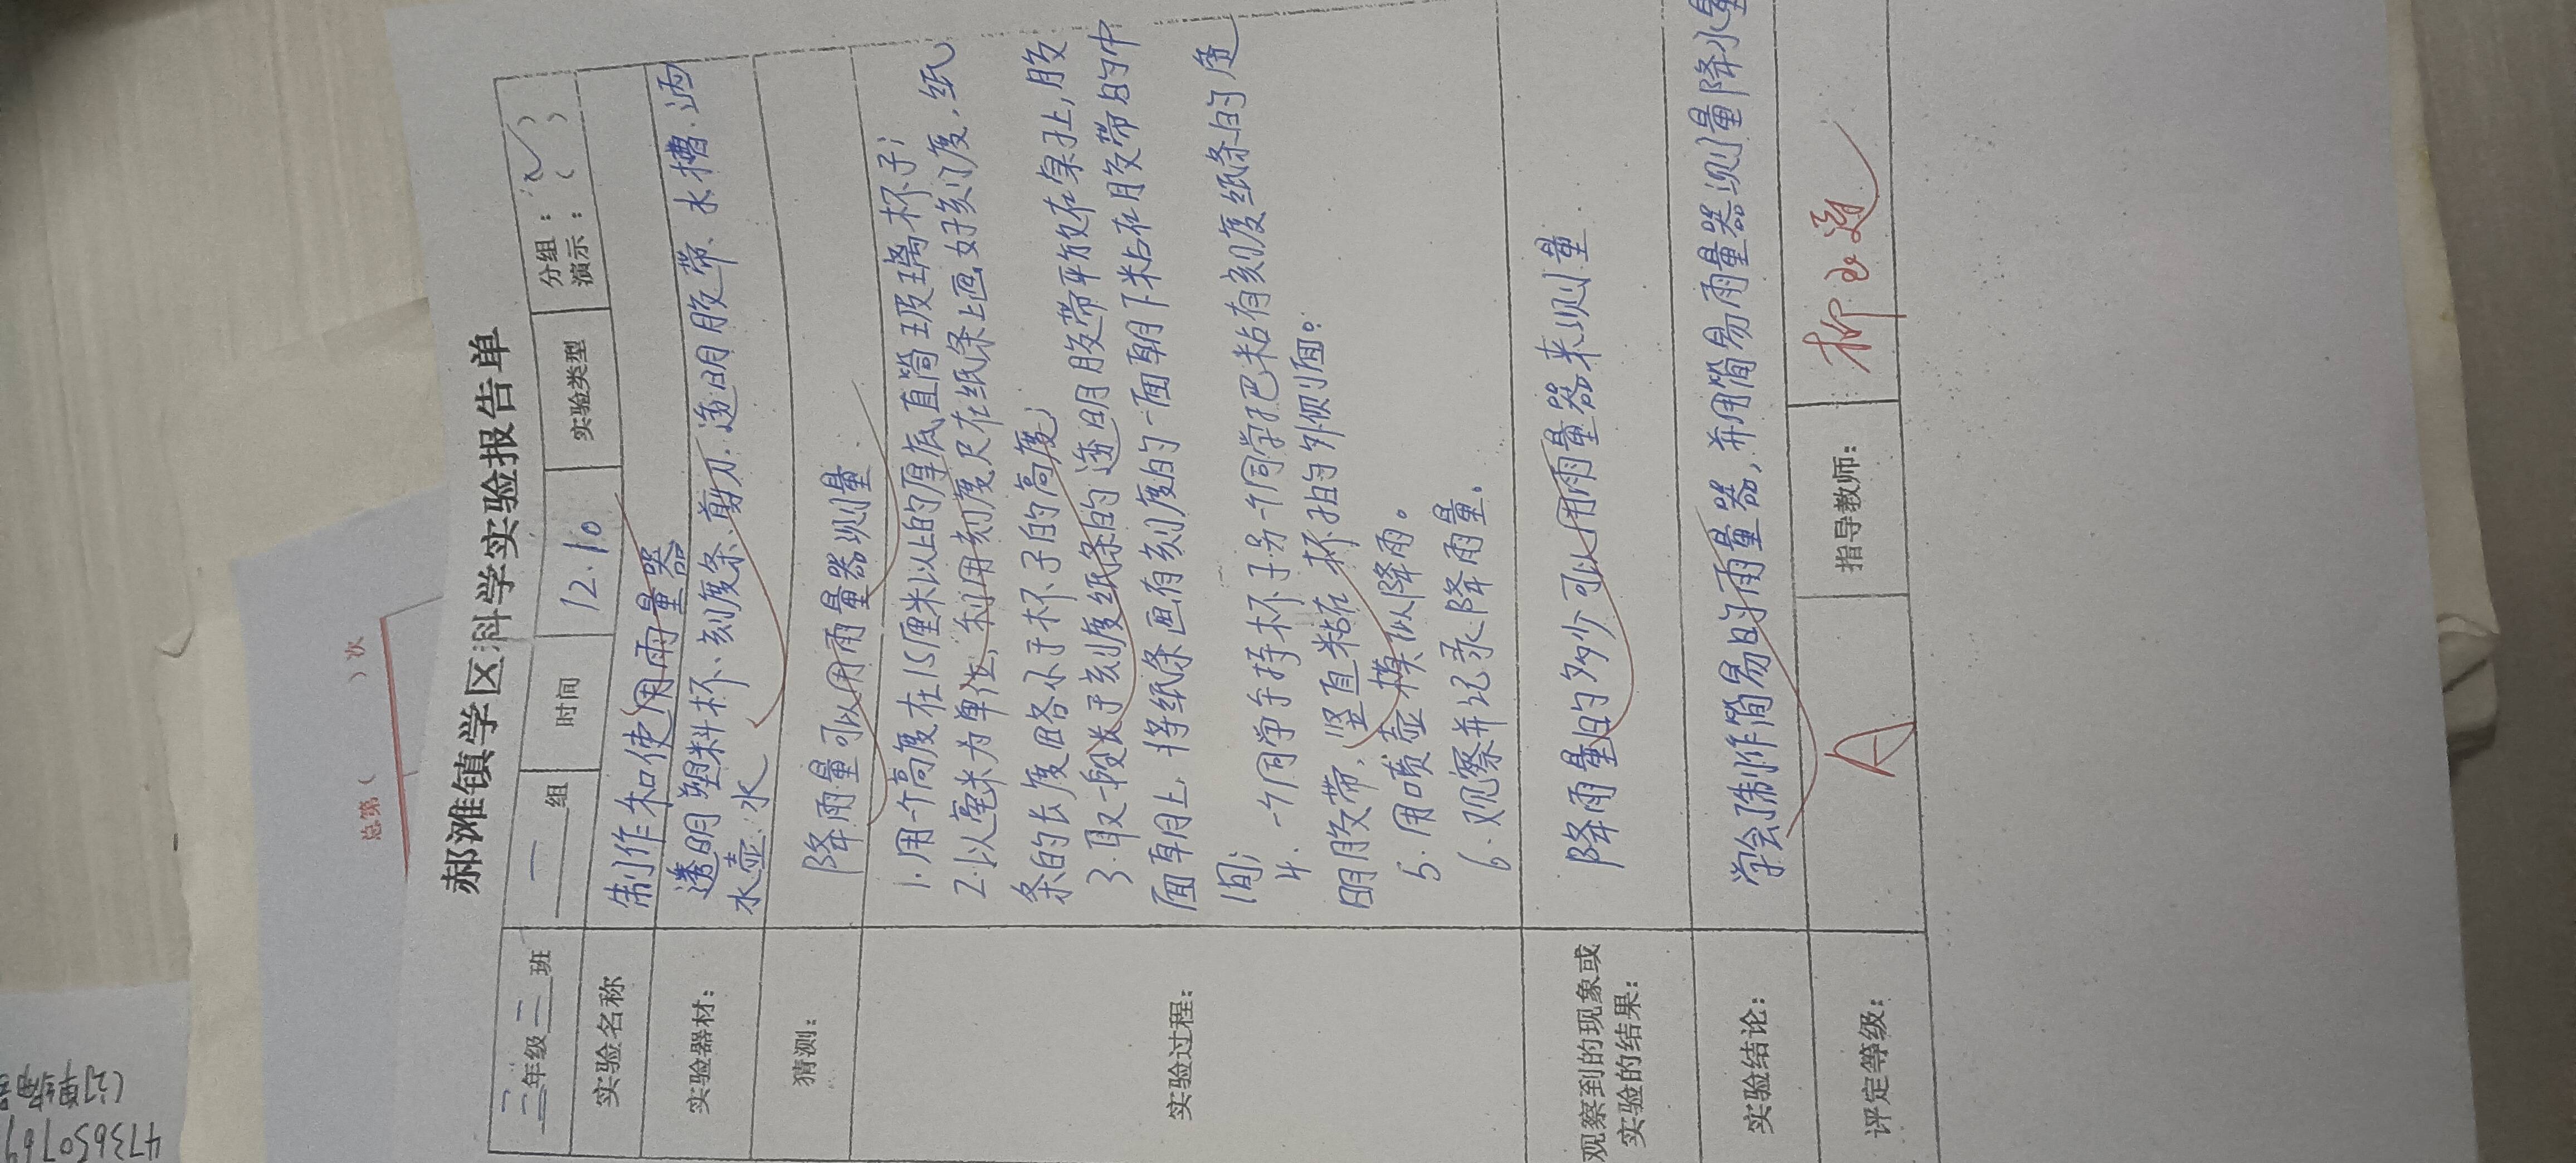 总第（ ）次
郝滩镇学区科学实验报告单
三年级三班 一组 时间 12.10 实验类型 分组：（✓）
演示：（ ）
实验名称 制作和使用雨量器
实验器材： 透明塑料杯、刻度条、剪刀、透明胶带、水槽、洒
水壶、水
猜测： 降雨量可以用雨量器测量
实验过程： 1.用一个高度在15厘米以上的厚底直筒玻璃杯子；
2.以毫米为单位，利用刻度尺在纸条上画好刻度，纸
条的长度略小于杯子的高度；
3.取一段长于刻度纸条的透明胶带平放在桌上，胶
面朝上，将纸条画有刻度的一面朝下粘在胶带的中
间；
4.一个同学手持杯子另一个同学把粘有刻度纸条的透
明胶带，竖直粘在杯子的外侧面。
5.用喷壶模拟降雨。
6.观察并记录降雨量。
观察到的现象或
实验的结果： 降雨量的多少可以用雨量器来测量
实验结论： 学会了制作简易的雨量器，并用简易雨量器测量降水量
评定等级： A 指导教师：